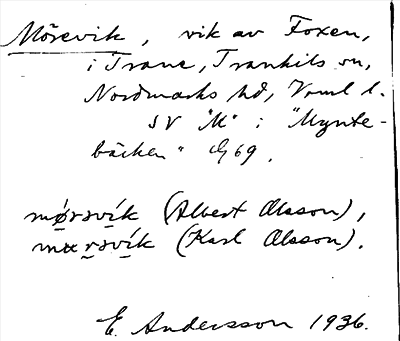 Mörevik, vik av Foxen,
i Trane, Trankils sn,
Nordmarks hd, Vrml l.
SV "M" i "Mynte-
bäcken" G 69.
mørəvik (Albert Olsson),
mɯrəvik (Karl Olsson).
E. Andersson 1936.